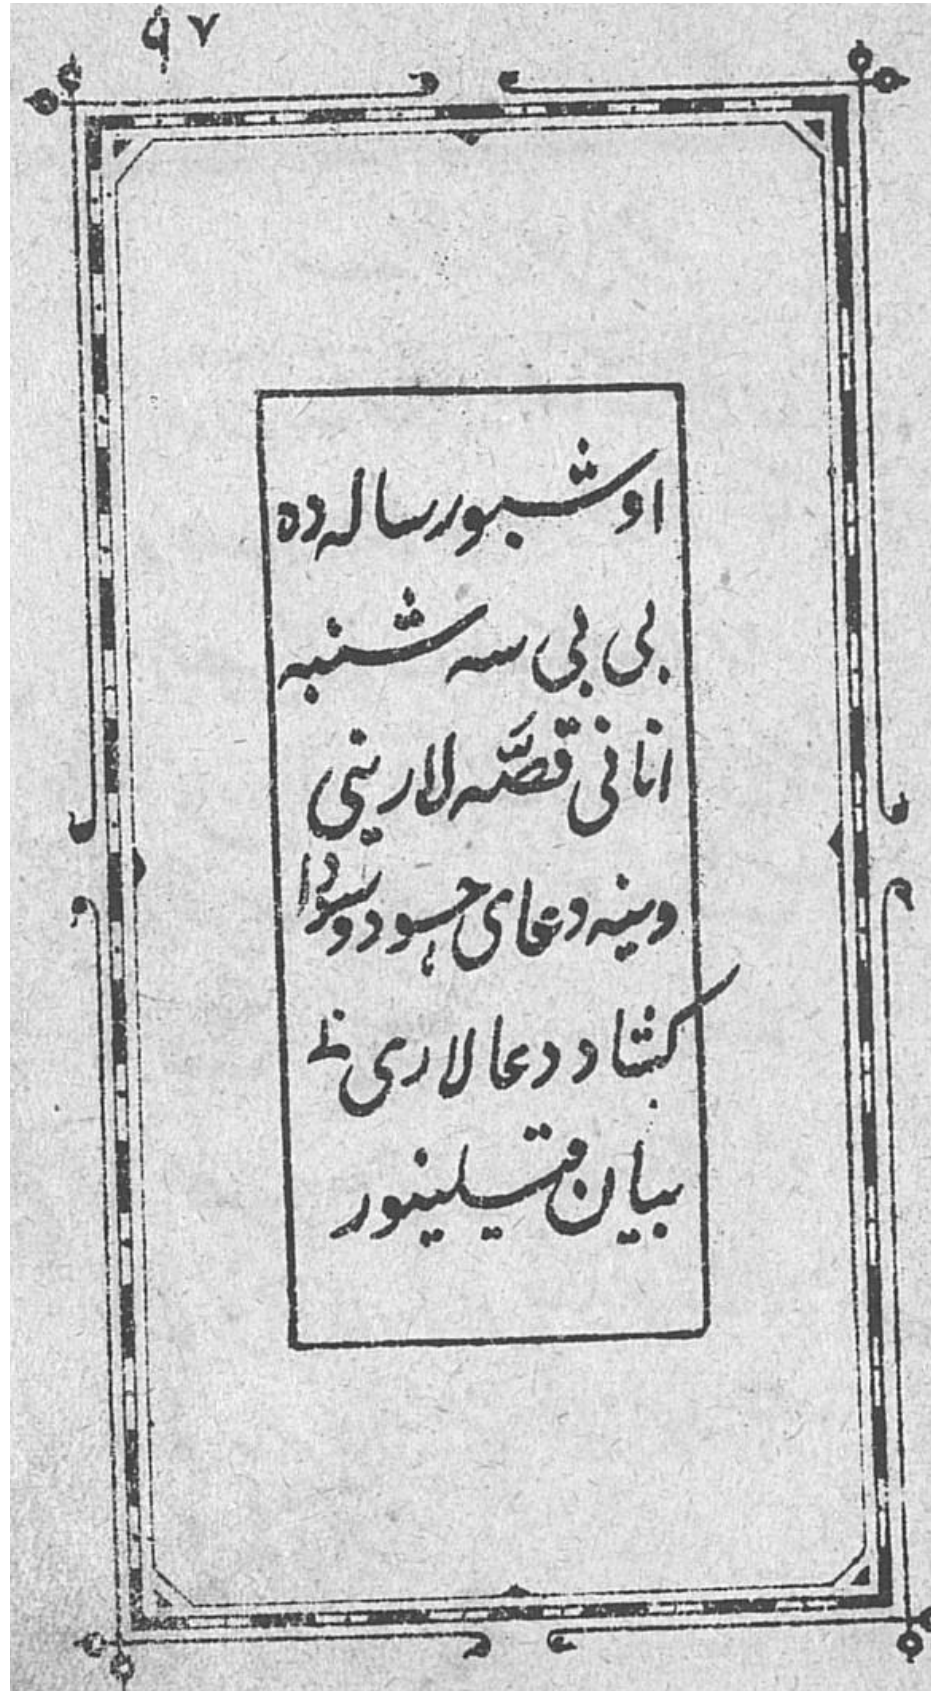 ۹۷
اوشبو رساله ده
بی بی سه شنبه
انانی قصّه لارینی
وینه دعای حسود و سودا
کشاد دعالاری
بیان قیلینور